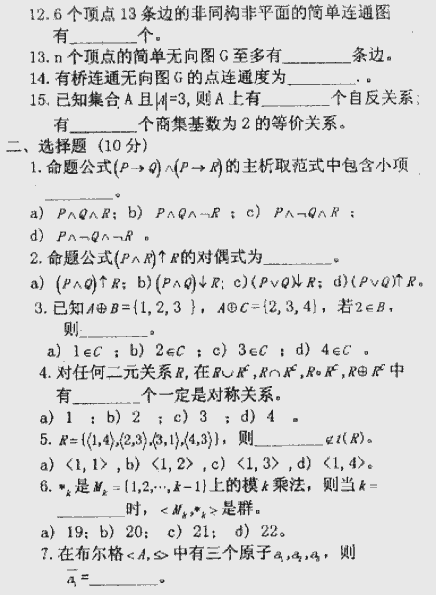 12. 6 个顶点 13 条边的非同构非平面的简单连通图
有________个。
13. n 个顶点的简单无向图 G 至多有________条边。
14. 有桥连通无向图 G 的点连通度为________. 。
15. 已知集合 A 且|A|=3, 则 A 上有________个自反关系;
有________个商集基数为 2 的等价关系。
二、选择题 (10 分)
1. 命题公式(P→Q)∧(P→R)的主析取范式中包含小项
________。
a) P∧Q∧R; b) P∧Q∧¬R ; c) P∧¬Q∧R ;
d) P∧¬Q∧¬R 。
2. 命题公式(P∧R)↑R的对偶式为________。
a) (P∧Q)↑R; b)(P∧Q)↓R; c)(P∨Q)↓R; d)(P∨Q)↑R。
3. 已知A⊕B={1, 2, 3 }, A⊕C={2, 3, 4}, 若2∈B,
则________。
a) 1∈C ; b) 2∈C ; c) 3∈C ; d) 4∈C 。
4. 对任何二元关系R, 在R∪Rᶜ,R∩Rᶜ,R∘Rᶜ,R⊕Rᶜ中
有________个一定是对称关系。
a) 1 ; b) 2 ; c) 3 ; d) 4 。
5. R={⟨1,4⟩,⟨2,3⟩,⟨3,1⟩,⟨4,3⟩}, 则________∉t(R)。
a) <1, 1> , b) <1, 2> , c) <1, 3> , d) <1, 4>。
6. *ₖ是Mₖ={1,2,⋯,k-1}上的模k乘法, 则当k=
________时, <Mₖ,*ₖ>是群。
a) 19; b) 20; c) 21; d) 22。
7. 在布尔格<A,≤>中有三个原子a₁,a₂,a₃, 则
a̅₁=________。